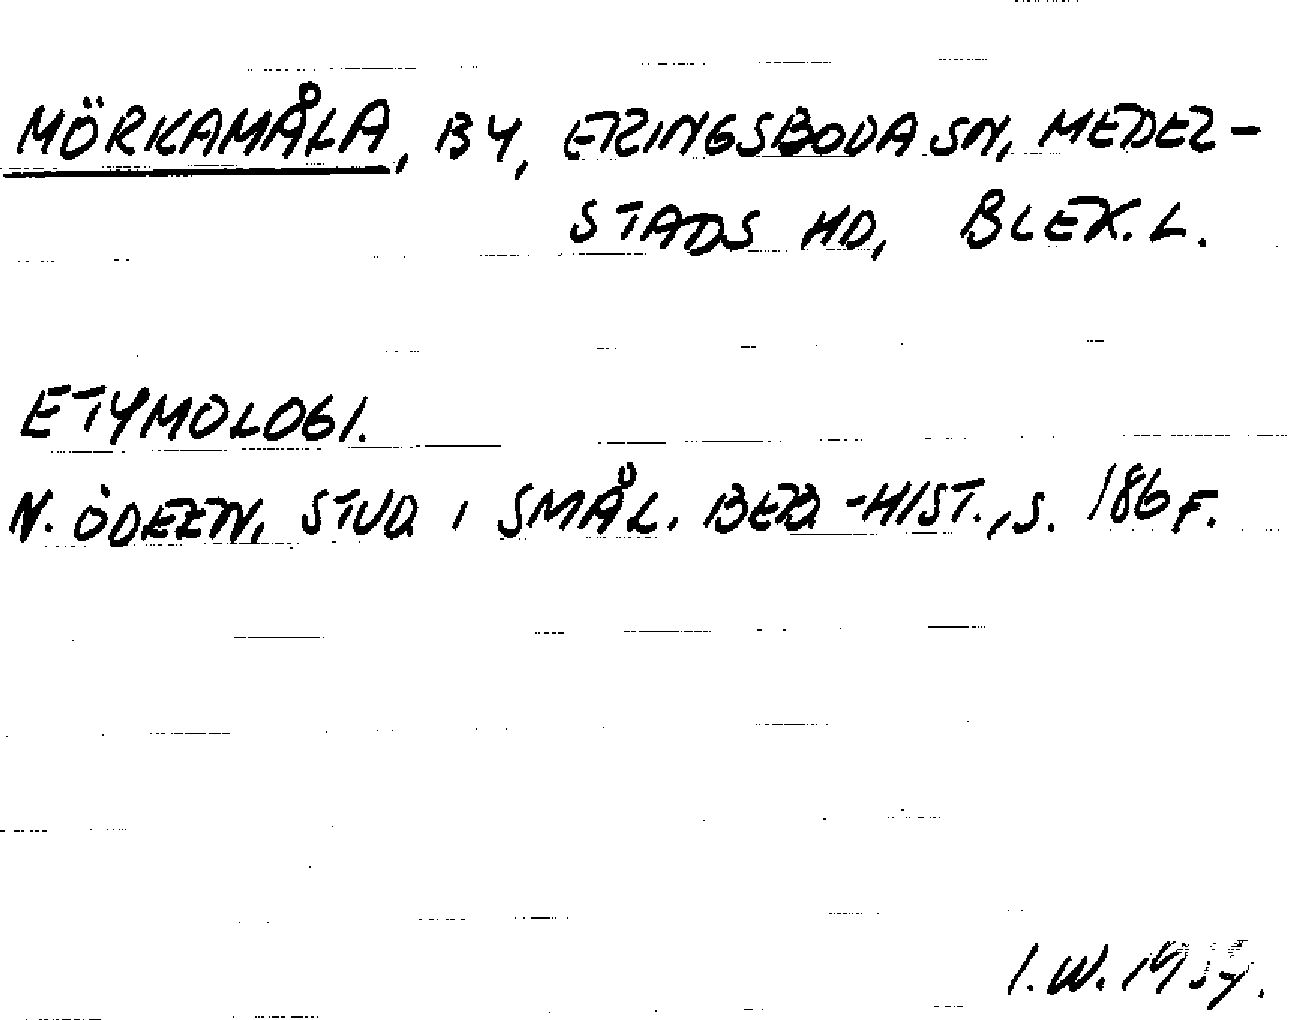 MÖRKAMÅLA, BY, ERINGSBODA SN, MEDEL-
STADS HD, BLEK. L.
ETYMOLOGI.
N. ÖDEEN, STUD I SMÅL. BEB.-HIST., S. 186 F.
I. W.